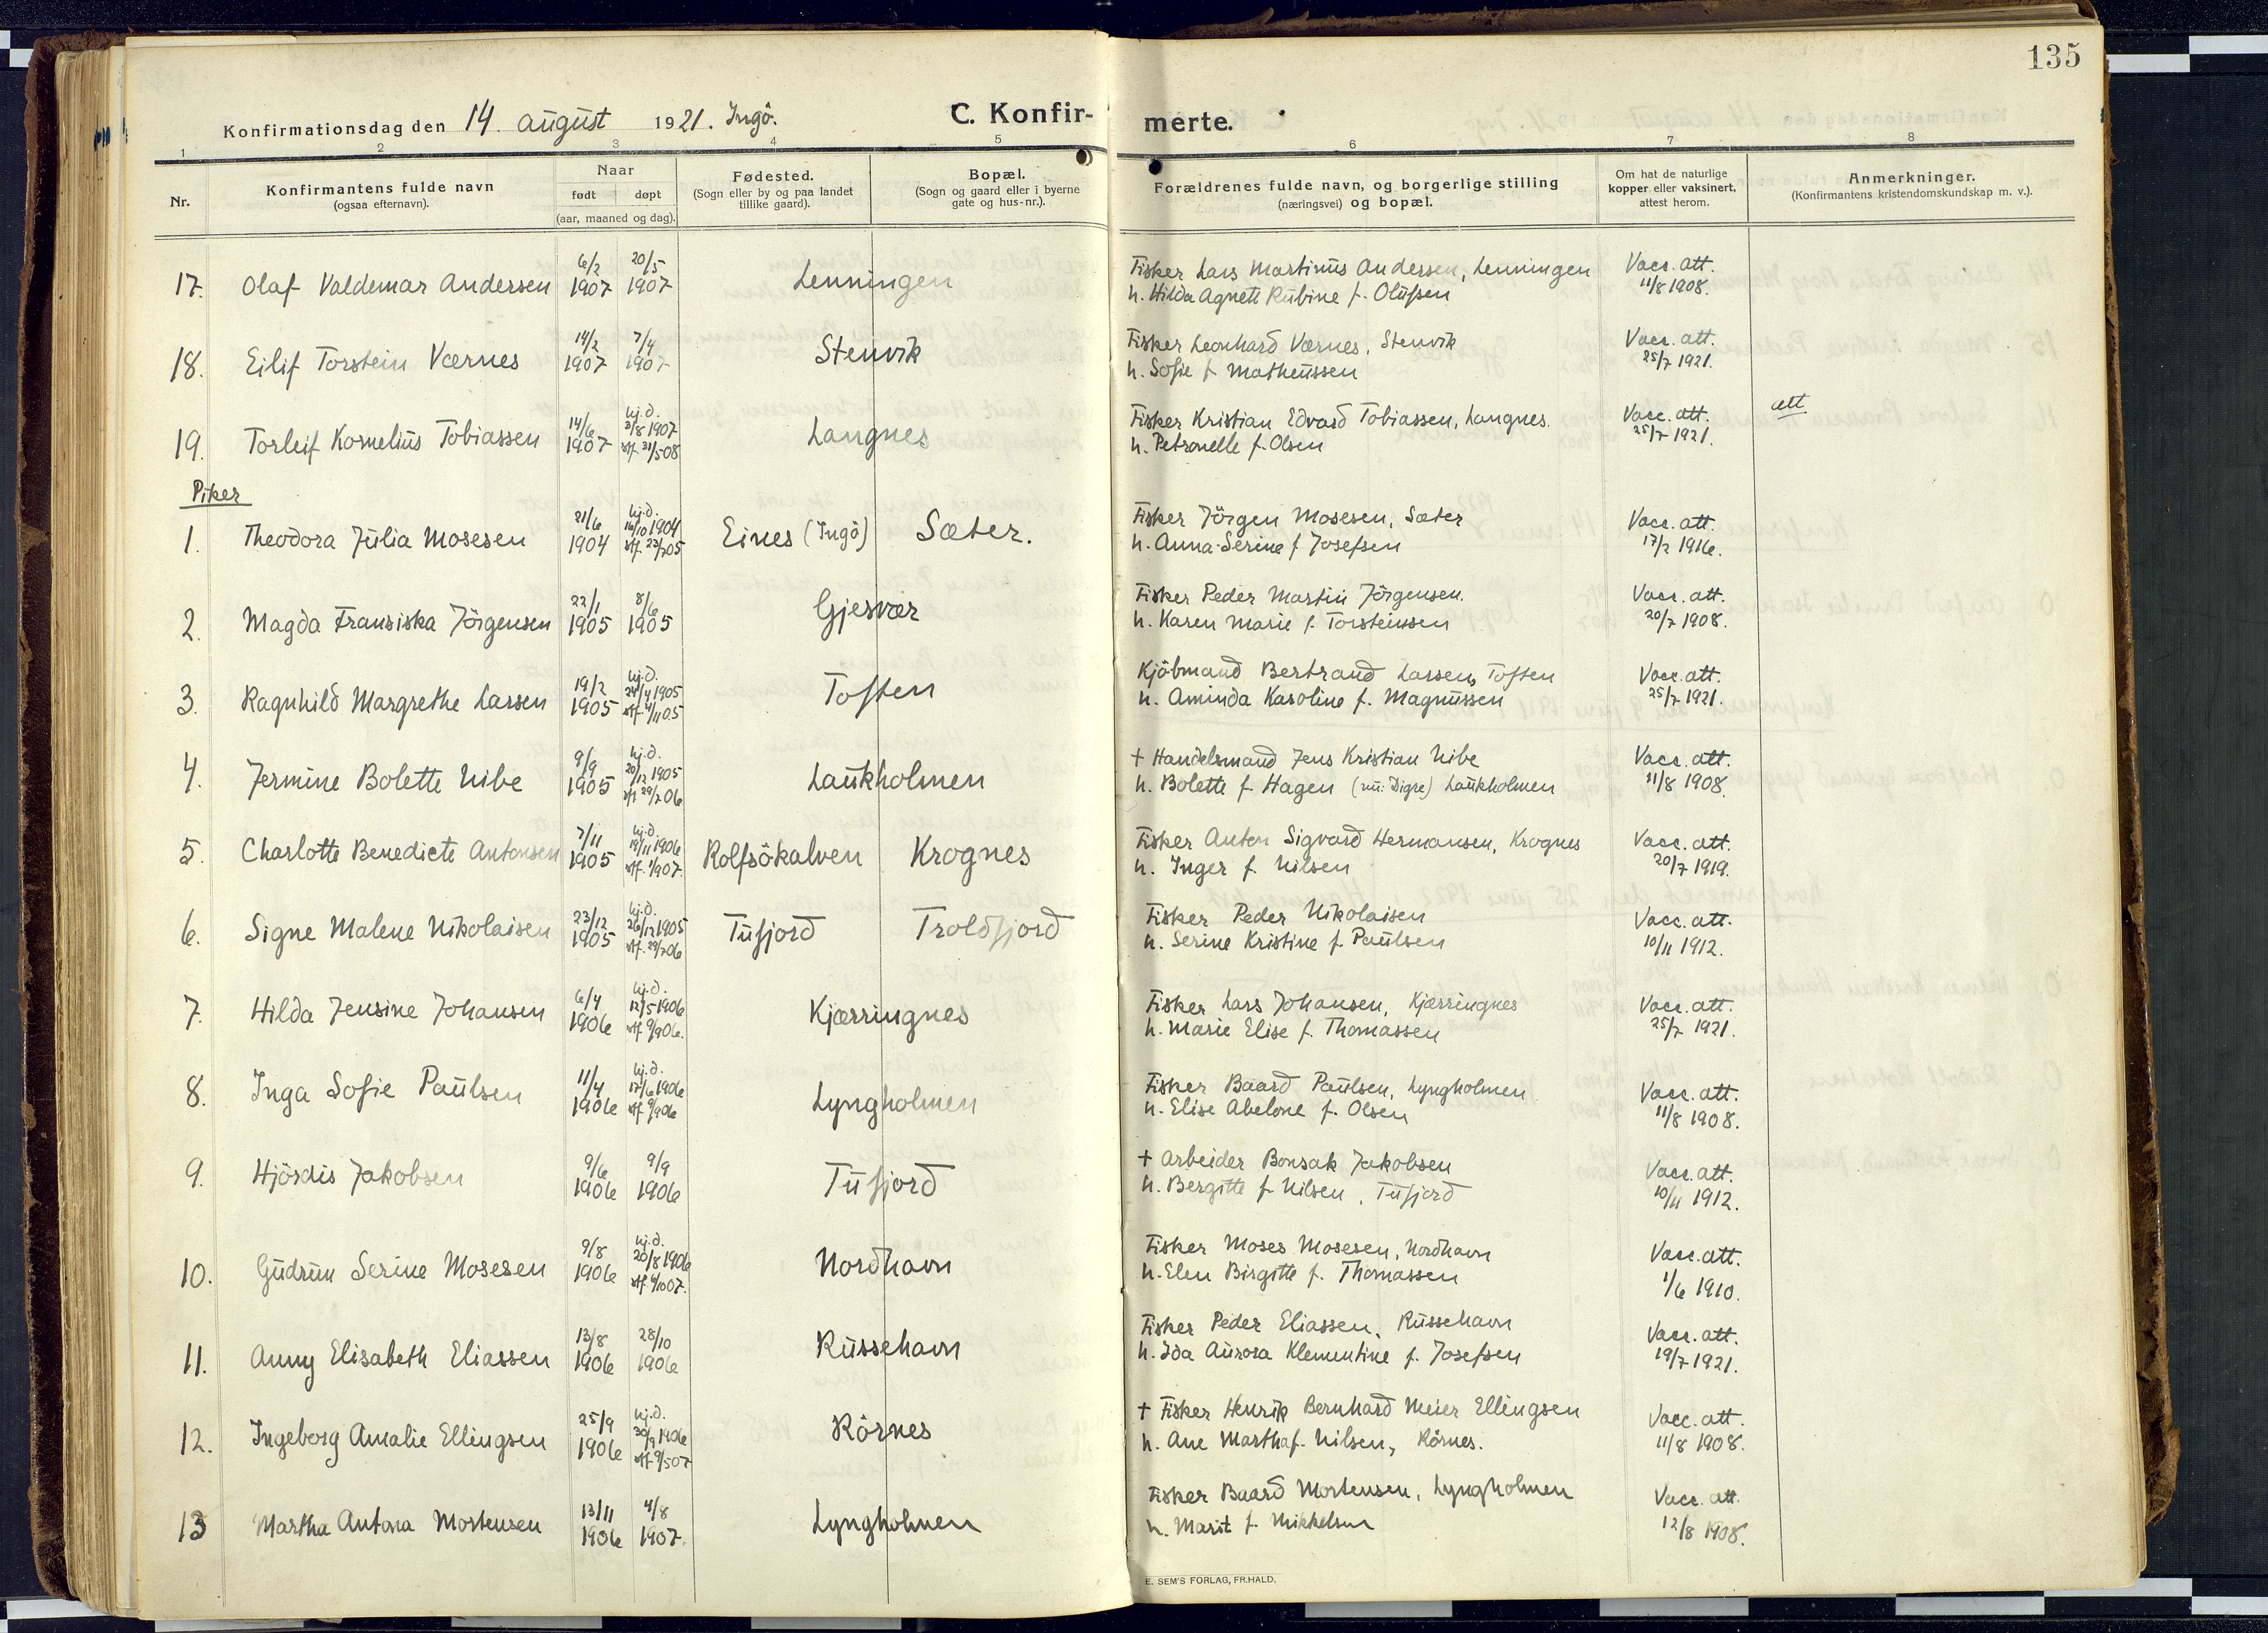 135
Konfirmationsdag den 14. august 1921. Ingö.
C. Konfirmerte.
1 2 3 4 5 6 7 8
Nr.
Konfirmantens fulde navn
(ogsaa efternavn).
Naar
født døpt
(aar, maaned og dag).
Fødested.
(Sogn eller by og paa landet
tillike gaard).
Bopæl.
(Sogn og gaard eller i byerne
gate og hus-nr.).
Forældrenes fulde navn, og borgerlige stilling
(næringsvei) og bopæl.
Om hat de naturlige
kopper eller vaksinert,
attest herom.
Anmerkninger.
(Konfirmantens kristendomskundskap m. v.).
17. Olaf Valdemar Andersen 6/2 1907 20/5 1907 Lenningen Fisker Lars Martinus Andersen, Lenningen Vacc. att.
h. Hilda Agnete Rubine f. Olufsen 11/8 1908.
18. Eilif TorsteinVærnes 14/2 1907 7/4 1907 Stenvik Fisker Leonhard Værnes, Stenvik Vacc. att.
h. Sofie f. Matheussen 25/7 1921.
19. Torleif Kornelius Tobiassen 14/6 1907 hj.d. 3/8 1907 stf. 31/5 08 Langnes Fisker Kristian Edvard Tobiassen, Langnes. Vacc. att. att
h. Petronelle f. Olsen 25/7 1921.
Piker
1. Theodora Julia Mosesen 21/6 1904 hj.d. 16/10 1904 stf. 23/7 05 Eines (Ingö) Sæter. Fisker Jörgen Mosesen, Sæter Vacc. att.
h. Anna Serine f. Josefsen 17/2 1916.
2. Magda Fransiska Jörgensen 22/1 1905 8/6 1905 Gjesvær Fisker Peder Martin Jörgensen. Vacc. att.
h. Karen Marie f. Torsteinsen 20/7 1908.
3. Ragnhild Margrethe Larsen 19/2 1905 hj.d. 24/4 1905 stf. 4/11 05 Toften Kjöbmand Bertrand Larsen, Toften Vacc. att.
h. Aminda Karoline f. Magnussen 25/7 1921.
4. Jermine Bolette Nibe 9/9 1905 hj.d. 20/12 1905 stf. 29/7 06 Laukholmen + Handelsmand Jens Kristian Nibe Vacc. att.
h. Bolette f. Hagen (nu: Digre) Laukholmen 11/8 1908.
5. Charlotte Benedicte Antonsen 7/11 1905 hj.d. 19/11 1906 stf. 1/9 07. Rolfsökalven Krognes Fisker Anton Sigvard Hermansen, Krognes Vacc. att.
h. Inger f. Nilsen 20/7 1919.
6. Signe Malene Nikolaisen 23/12 1905 hj.d. 26/12 1905 stf. 29/7 06 Tufjord Troldfjord Fisker Peder Nikolaisen Vacc. att.
h. Serine Kristine f. Paulsen 10/11 1912.
7. Hilda Jensine Johansen 6/4 1906 hj.d. 12/5 1906 stf. 9/9 06. Kjærringnes Fisker Lars Johansen, Kjærringnes Vacc. att.
h. Marie Elise f. Thomassen 25/7 1921.
8. Inga Sofie Paulsen 11/4 1906 hj.d. 17/6 1906 stf. 9/9 06 Lyngholmen Fisker Baard Paulsen, Lyngholmen Vacc. att.
h. Elise Abelone f. Olsen 11/8 1908.
9. Hjördis Jakobsen 9/6 1906 9/9 1906 Tufjord + Arbeider Bonsak Jakobsen Vacc. att.
h. Bergitte f. Nilsen, Tufjord 10/11 1912.
10. Gudrun Serine Mosesen 9/8 1906 hj.d. 20/8 1906 stf. 6/10 07. Nordhavn Fisker Moses Mosesen, Nordhavn Vacc. att.
h. Elen Birgitte f. Thomassen 1/6 1910.
11. Anny Elisabeth Eliassen 13/8 1906 28/10 1906 Russehavn Fisker Peder Eliassen, Russehavn Vacc. att.
h. Ida Aurora Klementine f. Josefsen 19/7 1921.
12. Ingeborg Amalie Ellingsen 25/9 1906 hj.d. 30/9 1906 stf. 9/5 07 Körnes + Fisker Henrik Bernhard Meier Ellingsen Vacc. att.
h. Ane Martha f. Nilsen, Körnes. 11/8 1908.
13 Martha Antona Mortensen 13/11 1906 4/8 1907. Lyngholmen Fisker Baard Mortensen, Lyngholmen Vacc. att.
h. Marit f. Mikkelsen 12/8 1908.
E. SEM'S FORLAG, FR.HALD.